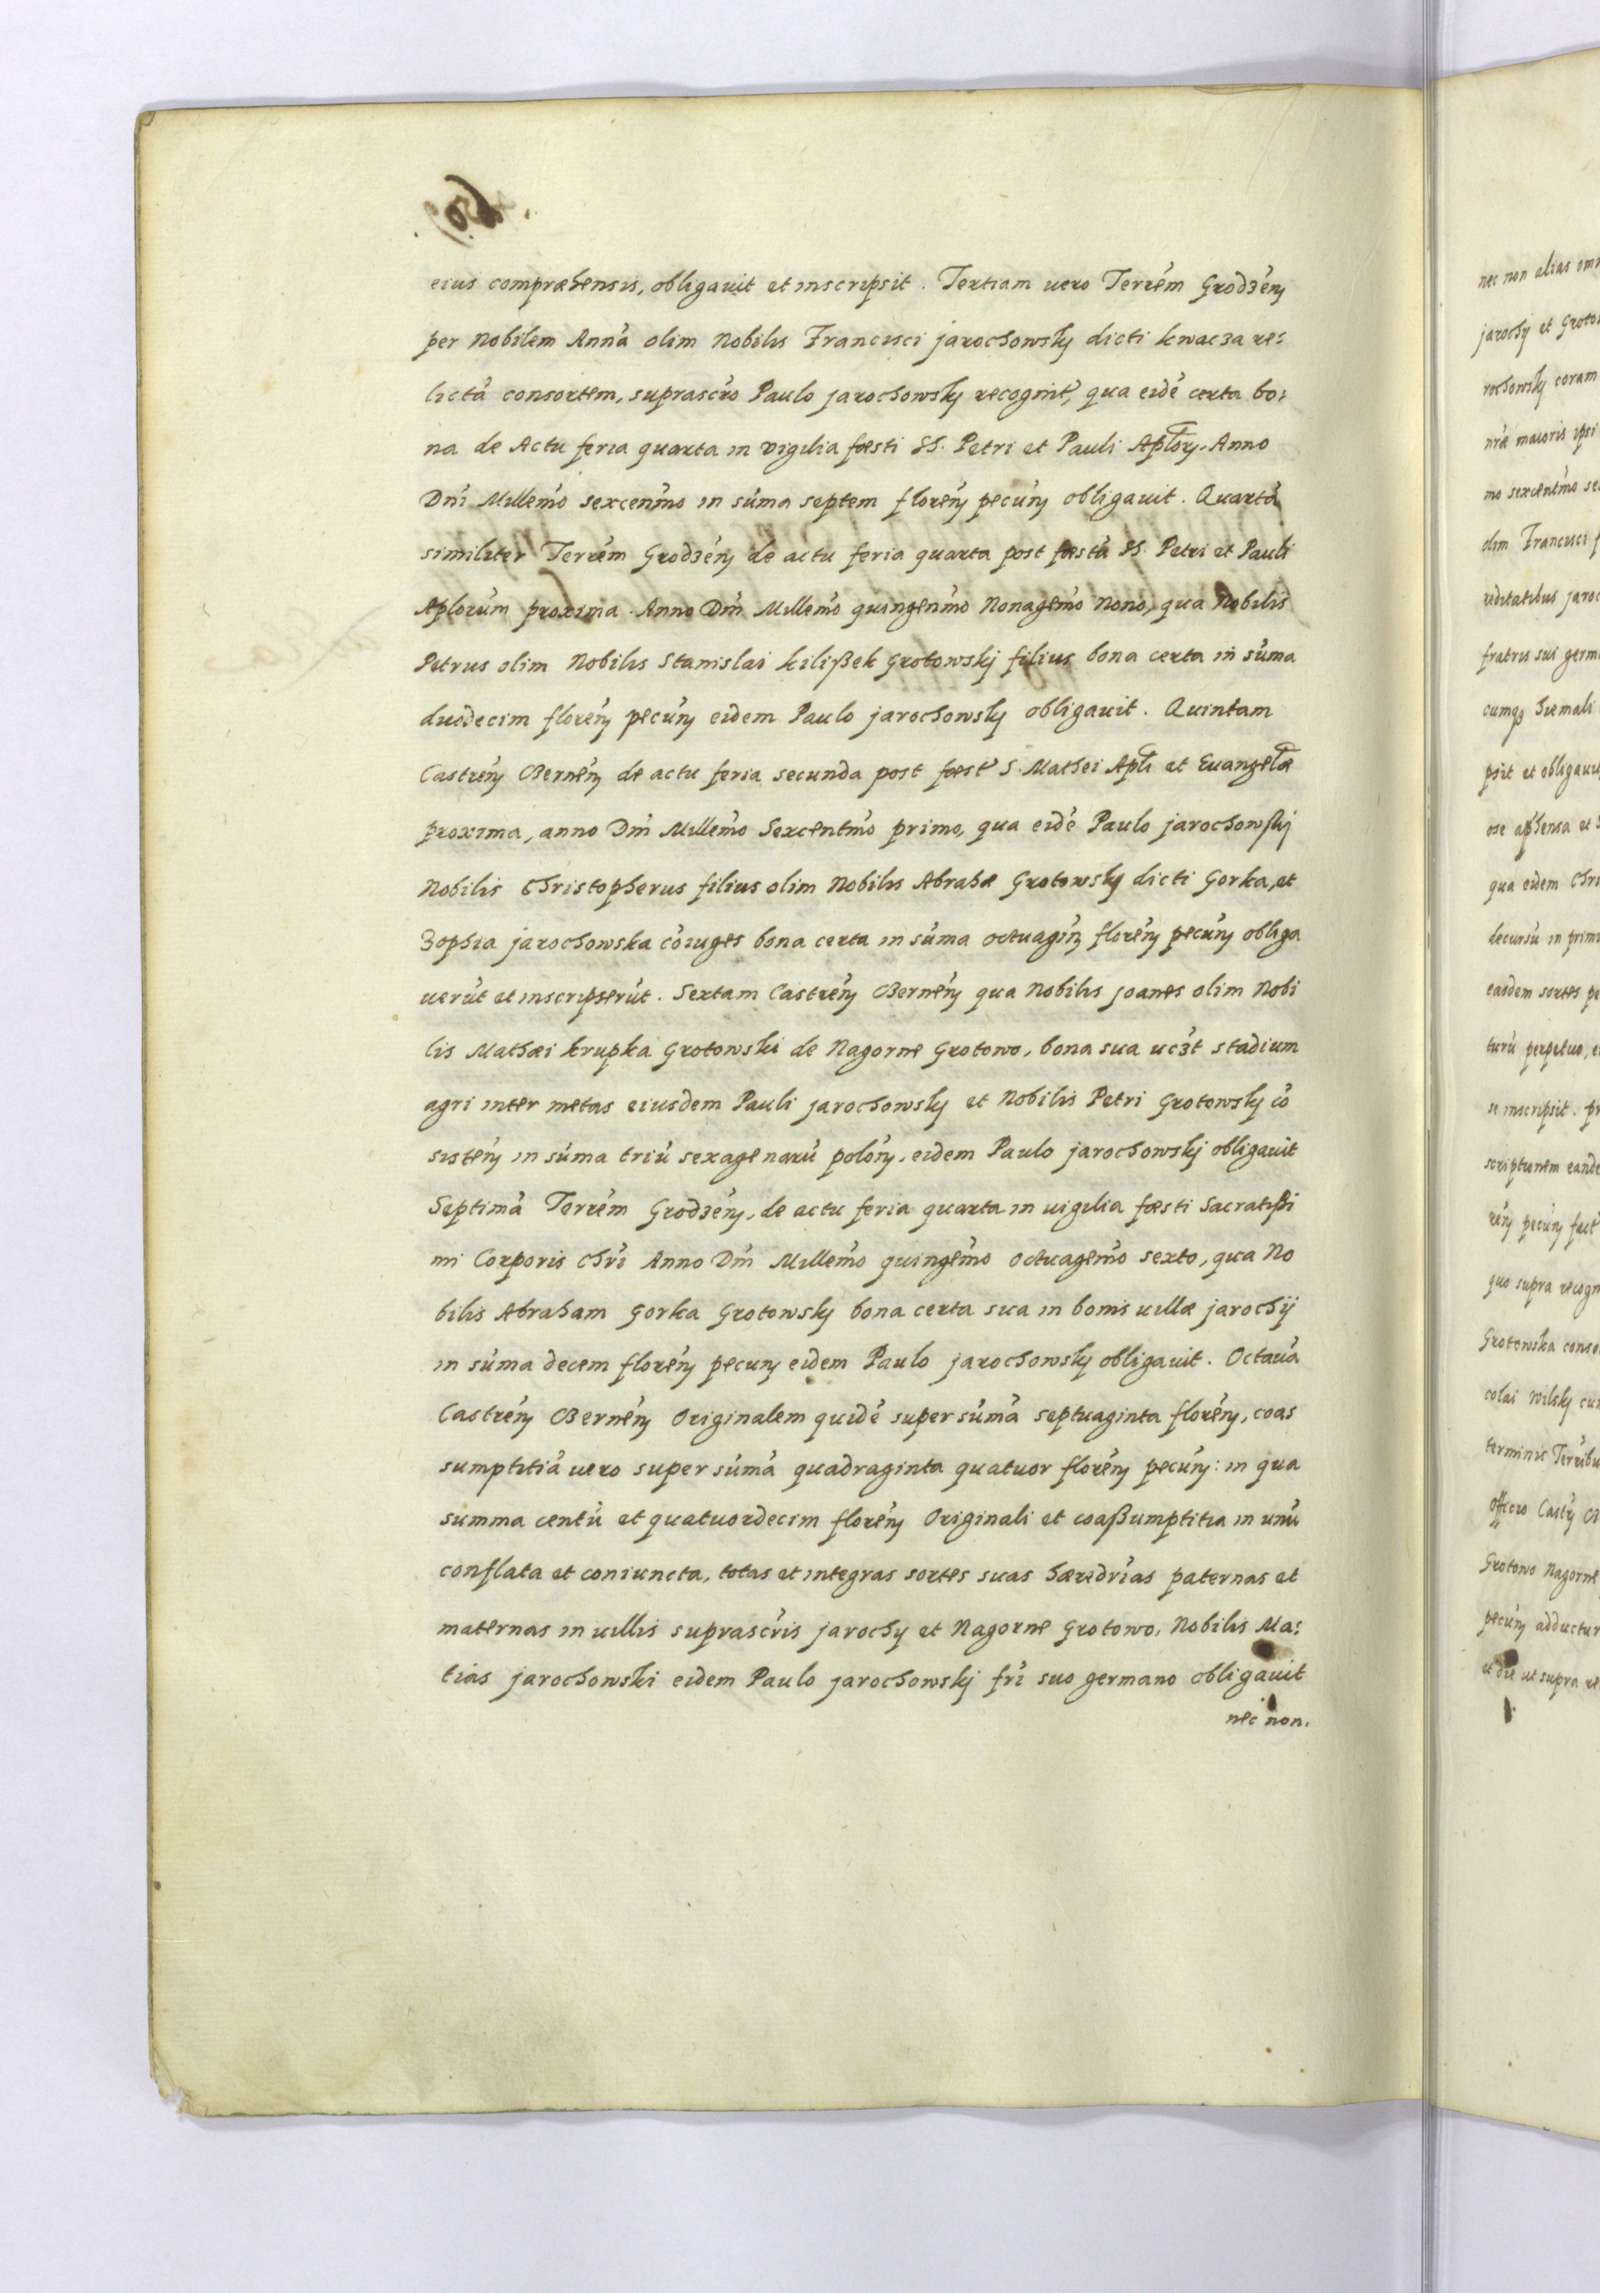 eius compræhensis, obligauit et inscripsit. Tertiam uero Terrem̃ Grodzeñ
per Nobilem Annã olim Nobilis Francisci Jarochowsky dicti kwacza re=
lictã consortem, suprascr̃o Paulo Jarochowsky recognit, qua eidẽ certa bo=
na de Actu feria quarta in vigilia fæsti SS. Petri et Pauli Aplor̃. Anno
Dnĩ Millem̃o sexcenm̃o in sũma septem floreñ pecuñ obligauit. Quartã
similiter Terrem̃ Grodzeñ de actu feria quarta post fæstũ SS. Petri et Pauli
Aplorũm proxima. Anno Dnĩ Millem̃o quingenm̃o Nonagem̃o Nono, qua Nobilis
Petrus olim Nobilis Stanislai kilißek Grotowskj filius bona certa in sũma
duodecim floreñ pecuñ eidem Paulo Jarochowsky obligauit. Quintam
Castreñ Berneñ de actu feria secunda post fæst̃ S. Mathei Apl̃i et Euangel̃æ
proxima, anno Dnĩ Millem̃o Sexcentm̃o primo, qua eidẽ Paulo Jarochowskj
Nobilis Christopherus filius olim Nobilis Abrahæ Grotowsky dicti Gorka, et
Zophia Jarochowska cõiuges bona certa in sũma octuagiñ floreñ pecuñ obliga
uerũt et inscripserũt. Sextam Castreñ Berneñ qua Nobilis Joanes olim Nobi
lis Mathæi krupka Grotowski de Nagorne Grotowo, bona sua uczt stadium
agri inter metas eiusdem Pauli Jarochowsky et Nobilis Petri Grotowsky cõ
sisteñ in sũma triũ sexagenarũ poloñ, eidem Paulo Jarochowskj obligauit
Septimã Terrem̃ Grodzeñ, de actu feria quarta in uigilia fæsti Sacratißi
mi Corporis Chrĩ Anno Dnĩ Millem̃o quingem̃o octuagem̃o sexto, qua No
bilis Abraham Gorka Grotowsky bona certa sua in bonis uillæ Jarochÿ
in sũma decem floreñ pecuñ eidem Paulo Jarochowsky obligauit. Octauã
Castreñ Berneñ Originalem quidẽ super sũmã septuaginta floreñ, coas
sumptitiã uero super sũmã quadraginta quatuor floreñ pecuñ: in qua
summa centũ et quatuordecim floreñ Originali et coaßumptitia in unũ
conflata et coniuncta, totas et integras sortes suas hæredrĩas paternas et
maternas in uillis suprascrĩs Jarochy et Nagorne Grotowo, Nobilis Ma=
tias Jarochowski eidem Paulo Jarochowskj frĩ suo germano obligauit
nec non.
nec non alias
Jarochy et
rochowsky coram
nrã maioris ipsi
mo sexcentm̃o
olim Francisci
fratris sui
cumq hiemali
psit et obligauit
qua eidem
decursũ in
easdem sortes
turũ perpetuo,
se inscripsit.
reñ pecuñ
quo supra
Grotowska
colai Wilskj
terminis
officio
Grotowo Nagorne
pecuñ
et die ut supra